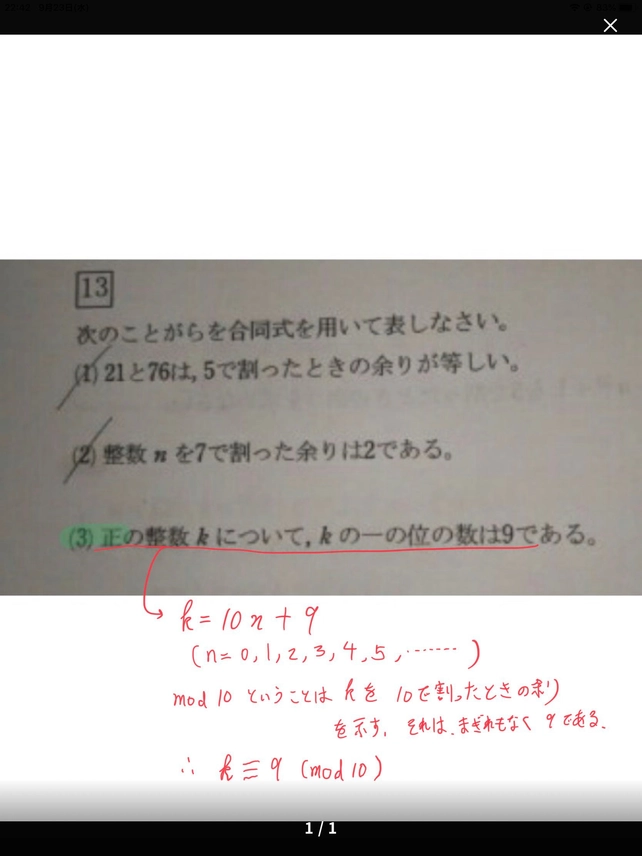 13
次のことがらを合同式を用いて表しなさい。
(1) 21と76は, 5で割ったときの余りが等しい。
(2) 整数 n を7で割った余りは2である。
(3) 正の整数 k について, k の一の位の数は9である。
k = 10n + 9
(n = 0, 1, 2, 3, 4, 5, ⋯⋯)
mod 10 ということは k を 10で割ったときの余り
を示す。それは、まぎれもなく 9である。
∴ k ≡ 9 (mod 10)
1 / 1